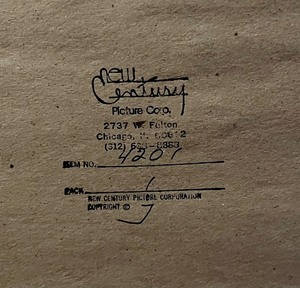 new
Century
Picture Corp.
2737 W. Fulton
Chicago, Il. 60612
(312)
ITEM NO. 4201
PACK 1
NEW CENTURY PICTURE CORPORATION
COPYRIGHT ©